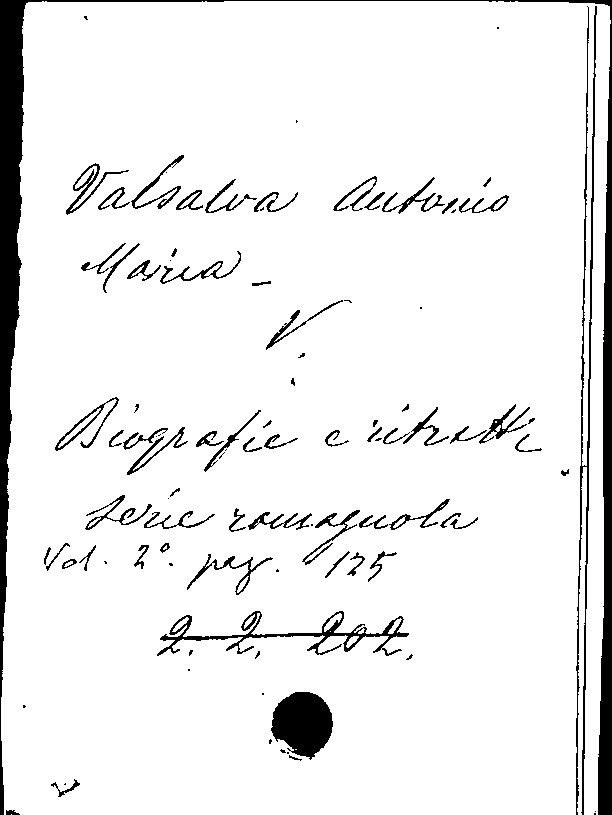 Valsalva Antonio
Maria -
V.
Biografie e ritratti
serie romagnola
Vol. 2º. pag. 125
2. 2. 202.